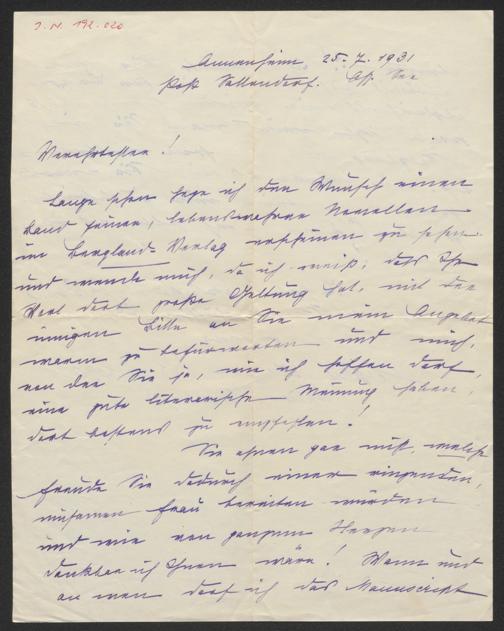 I. N. 192.020
Annenheim 25. 7. 1931
Post Sattendorf. Oss. See
Verehrtester!
Lange schon hege ich den Wunsch einen
Band feiner, lebenswahrer Novellen
im Bergland-Verlag erscheinen zu sehen
und wende mich, da ich weiß, dass Ihr
Wort dort große Geltung hat, mit der
innigen Bitte an Sie mein Angebot
warm zu befürworten und mich,
von der Sie ja, wie ich hoffen darf,
eine gute literarische Meinung haben,
dort bestens zu empfehlen!
Sie ahnen gar nicht, welche
Freude Sie dadurch einer ringenden,
einsamen Frau bereiten würden
und wie von ganzem Herzen
dankbar ich Ihnen wäre! Wann und
an wen darf ich das Manuscript